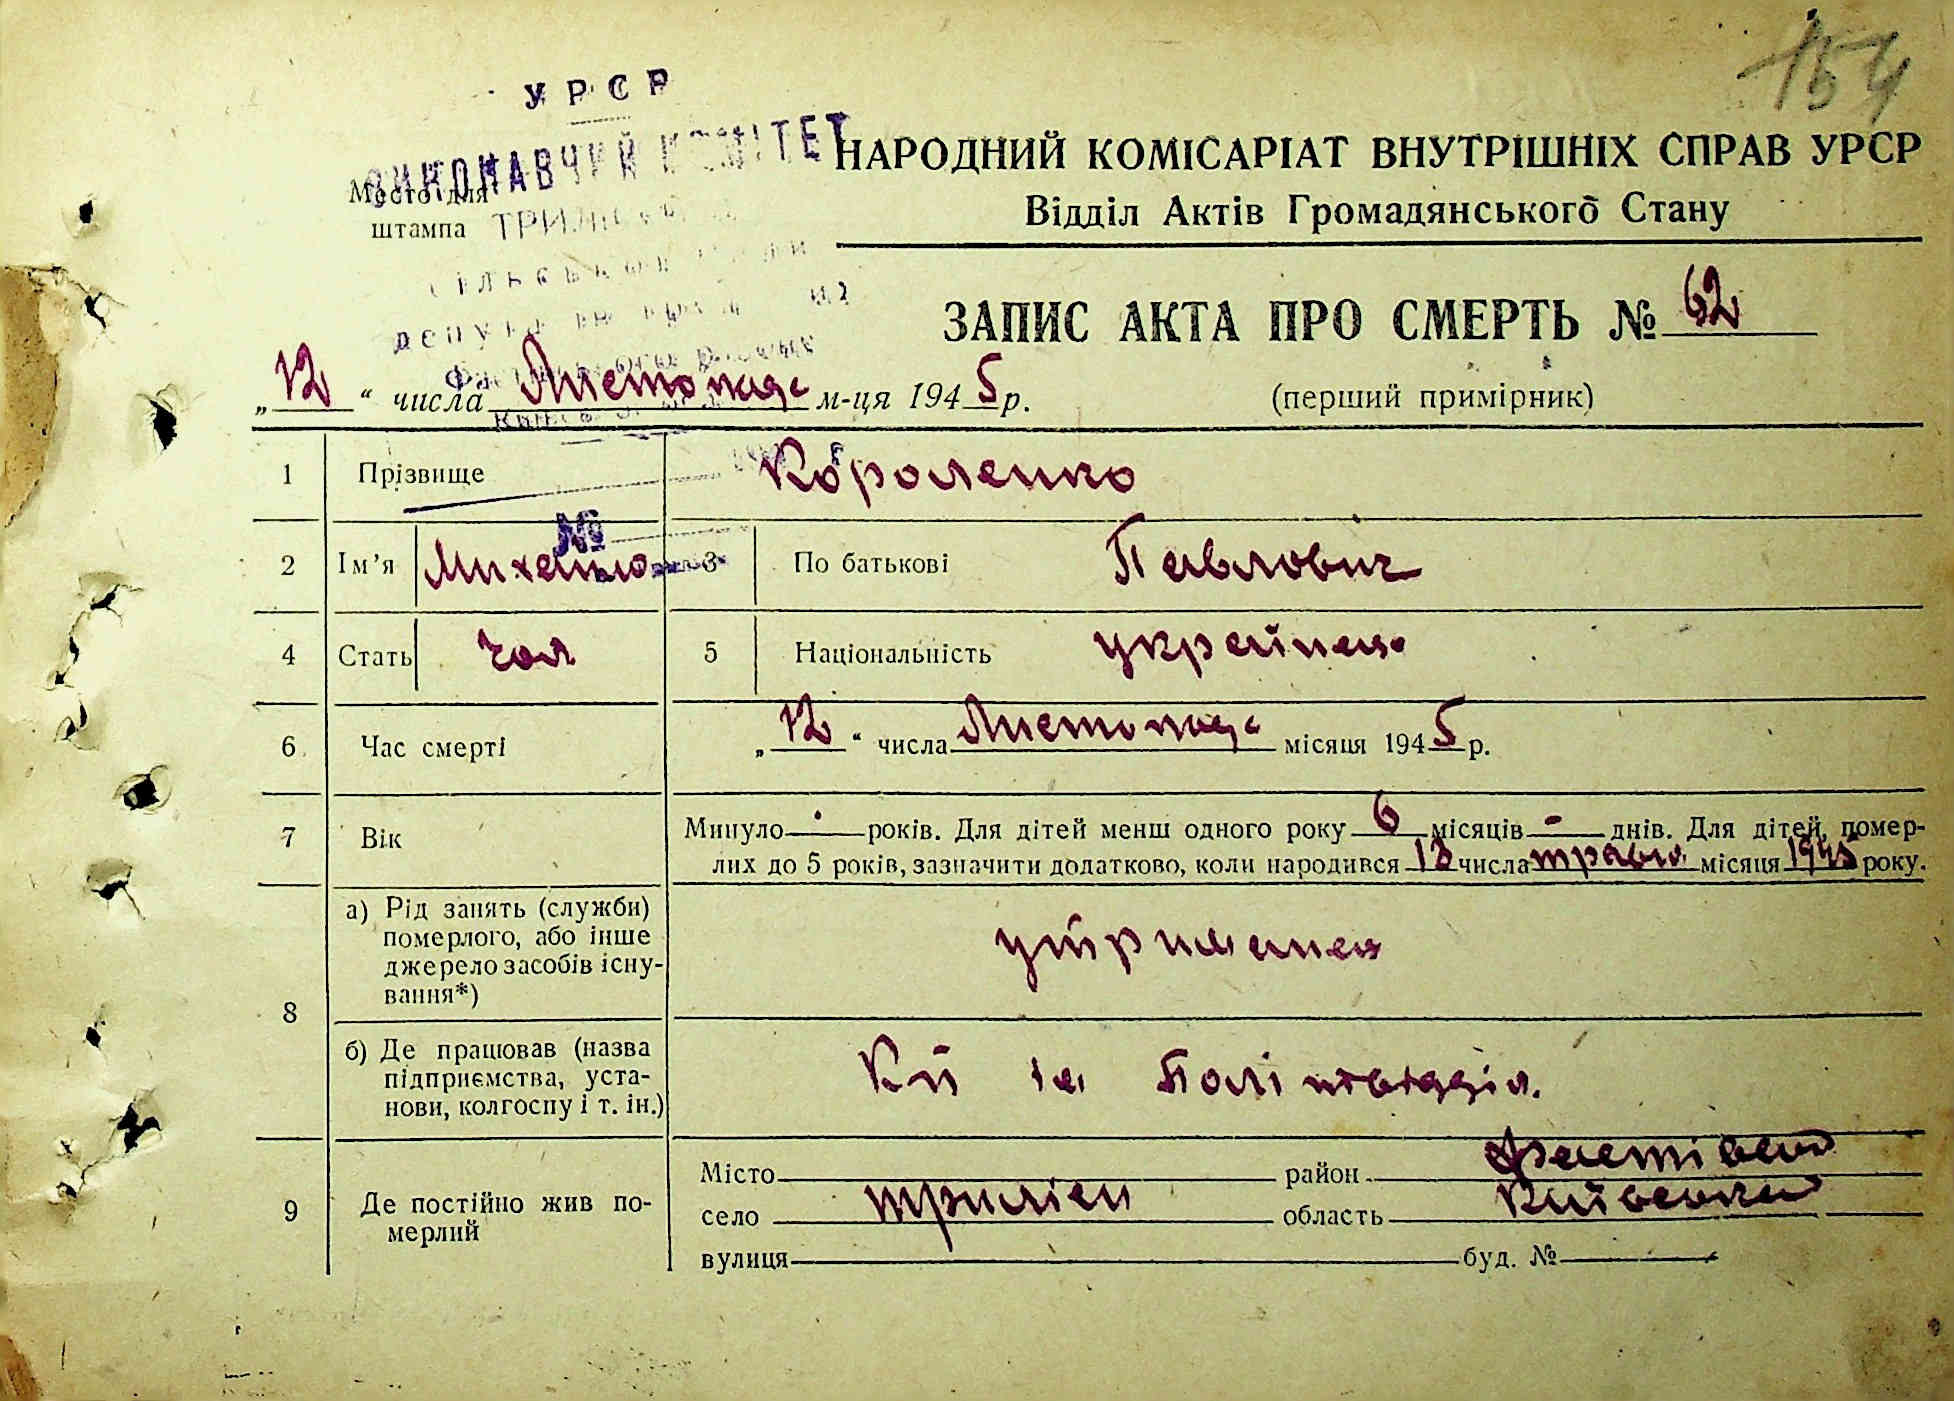 154
УРСР
ВИКОНАВЧИЙ КОМІТЕТ
НАРОДНИЙ КОМІСАРІАТ ВНУТРІШНІХ СПРАВ УРСР
Место для
штампа
Відділ Актів Громадянського Стану
ЗАПИС АКТА ПРО СМЕРТЬ № 62
„12“ числа Листопада м-ця 1945 р.
(перший примірник)
1 Прізвище Короленко
№
2 Ім’я Михайло 3 По батькові Павлович
4 Стать чол 5 Національність українец
6 Час смерті „12“ числа Листопада місяця 1945 р.
7 Вік
Минуло - років. Для дітей менш одного року 6 місяців - днів. Для дітей, помер-
лих до 5 років, зазначити додатково, коли народився 12 числа травня місяця 1945 року.
8
а) Рід занять (служби)
померлого, або інше
джерело засобів існу-
вання*)
утриманец
б) Де працював (назва
підприємства, уста-
нови, колгоспу і т. ін.)
Політвідділ.
9 Де постійно жив по-
мерлий
Місто район Фастівськ
село Триліси область Київська
вулиця буд. №